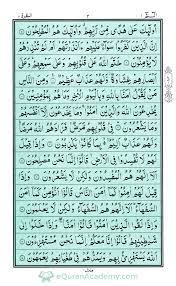 البقرة ٢
٣
الٓمّٓ ١
أُولَٰئِكَ عَلَىٰ هُدًى مِّنْ رَّبِّهِمْ وَأُولَٰئِكَ هُمُ الْمُفْلِحُونَ
إِنَّ الَّذِينَ كَفَرُوا سَوَاءٌ عَلَيْهِمْ ءَأَنْذَرْتَهُمْ أَمْ لَمْ تُنْذِرْهُمْ
لَا يُؤْمِنُونَ خَتَمَ اللَّهُ عَلَىٰ قُلُوبِهِمْ وَعَلَىٰ سَمْعِهِمْ وَعَلَىٰ
أَبْصَارِهِمْ غِشَاوَةٌ وَلَهُمْ عَذَابٌ عَظِيمٌ وَمِنَ النَّاسِ
مَنْ يَقُولُ آمَنَّا بِاللَّهِ وَبِالْيَوْمِ الْآخِرِ وَمَا هُمْ بِمُؤْمِنِينَ
يُخَادِعُونَ اللَّهَ وَالَّذِينَ آمَنُوا وَمَا يَخْدَعُونَ إِلَّا أَنْفُسَهُمْ
وَمَا يَشْعُرُونَ فِي قُلُوبِهِمْ مَّرَضٌ فَزَادَهُمُ اللَّهُ مَرَضًا
وَلَهُمْ عَذَابٌ أَلِيمٌ بِمَا كَانُوا يَكْذِبُونَ وَإِذَا قِيلَ
لَهُمْ لَا تُفْسِدُوا فِي الْأَرْضِ قَالُوا إِنَّمَا نَحْنُ مُصْلِحُونَ
أَلَا إِنَّهُمْ هُمُ الْمُفْسِدُونَ وَلَٰكِنْ لَّا يَشْعُرُونَ وَإِذَا قِيلَ
لَهُمْ آمِنُوا كَمَا آمَنَ النَّاسُ قَالُوا أَنُؤْمِنُ كَمَا آمَنَ
السُّفَهَاءُ أَلَا إِنَّهُمْ هُمُ السُّفَهَاءُ وَلَٰكِنْ لَّا يَعْلَمُونَ
وَإِذَا لَقُوا الَّذِينَ آمَنُوا قَالُوا آمَنَّا وَإِذَا خَلَوْا إِلَىٰ
شَيَاطِينِهِمْ قَالُوا إِنَّا مَعَكُمْ إِنَّمَا نَحْنُ مُسْتَهْزِءُونَ
اللَّهُ يَسْتَهْزِئُ بِهِمْ وَيَمُدُّهُمْ فِي طُغْيَانِهِمْ يَعْمَهُونَ
eQuranAcademy.com